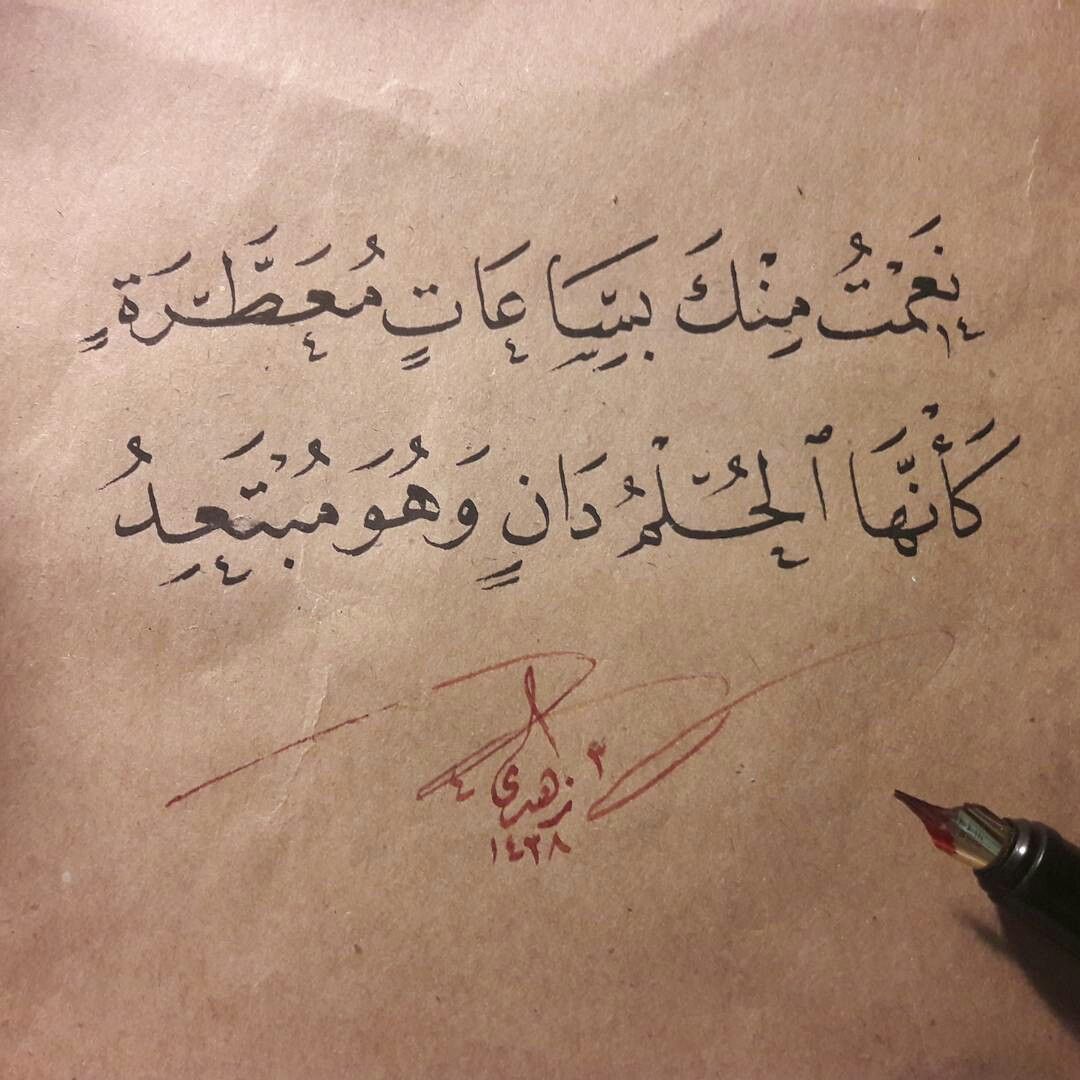 نَعِمْتُ مِنْكَ بِسَاعَاتٍ مُعَطَّرَةٍ
كَأَنَّهَا ٱلْحُلْمُ دَانٍ وَهُوَ مُبْتَعِدُ
زهدي
١٤٣٨